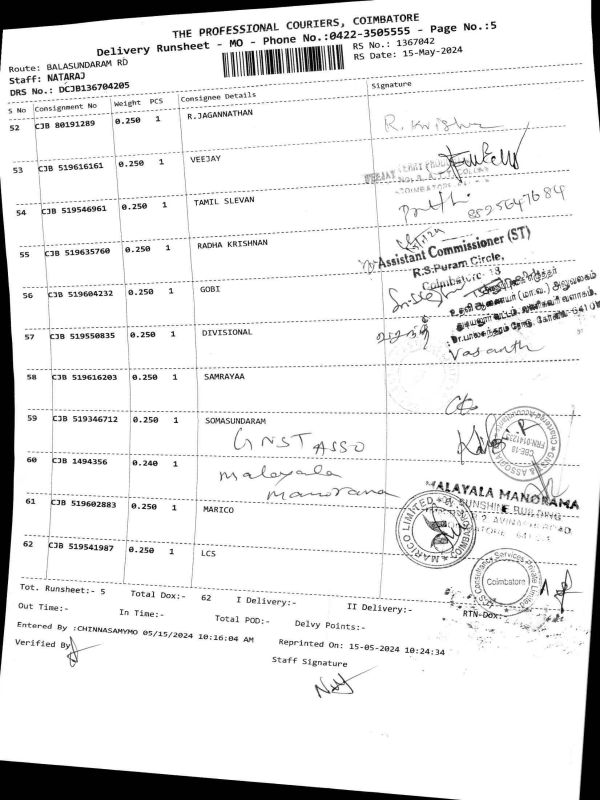 THE PROFESSIONAL COURIERS, COIMBATORE
Delivery Runsheet - MO - Phone No.:0422-3505555 - Page No.:5
Route: BALASUNDARAM RD
RS No.: 1367042
Staff: NATARAJ
RS Date: 15-May-2024
DRS No.: DCJB136704205
S No Consignment No Weight PCS Consignee Details Signature
52 CJB 80191289 0.250 1 R.JAGANNATHAN
R. Krishn
53 CJB 519616161 0.250 1 VEEJAY
VEEJAY
COIMBATORE
54 CJB 519546961 0.250 1 TAMIL SLEVAN
55 CJB 519635760 0.250 1 RADHA KRISHNAN
Assistant Commissioner (ST)
R.S.Puram Circle,
Coimbatore-18
56 CJB 519604232 0.250 1 GOBI
57 CJB 519550835 0.250 1 DIVISIONAL
Vasanth
58 CJB 519616203 0.250 1 SAMRAYAA
59 CJB 519346712 0.250 1 SOMASUNDARAM
GNST ASSO
60 CJB 1494356 0.240 1
malayala
manorama
MALAYALA MANORAMA
SUNSHINE BUILDING
61 CJB 519602883 0.250 1 MARICO
MARICO LIMITED
62 CJB 519541987 0.250 1 LCS
Coimbatore
Tot. Runsheet:- 5 Total Dox:- 62 I Delivery:- II Delivery:- RTN-Dox:-
Out Time:- In Time:- Total POD:- Delvy Points:-
Entered By :CHINNASAMYMO 05/15/2024 10:16:04 AM Reprinted On: 15-05-2024 10:24:34
Verified By
Staff Signature